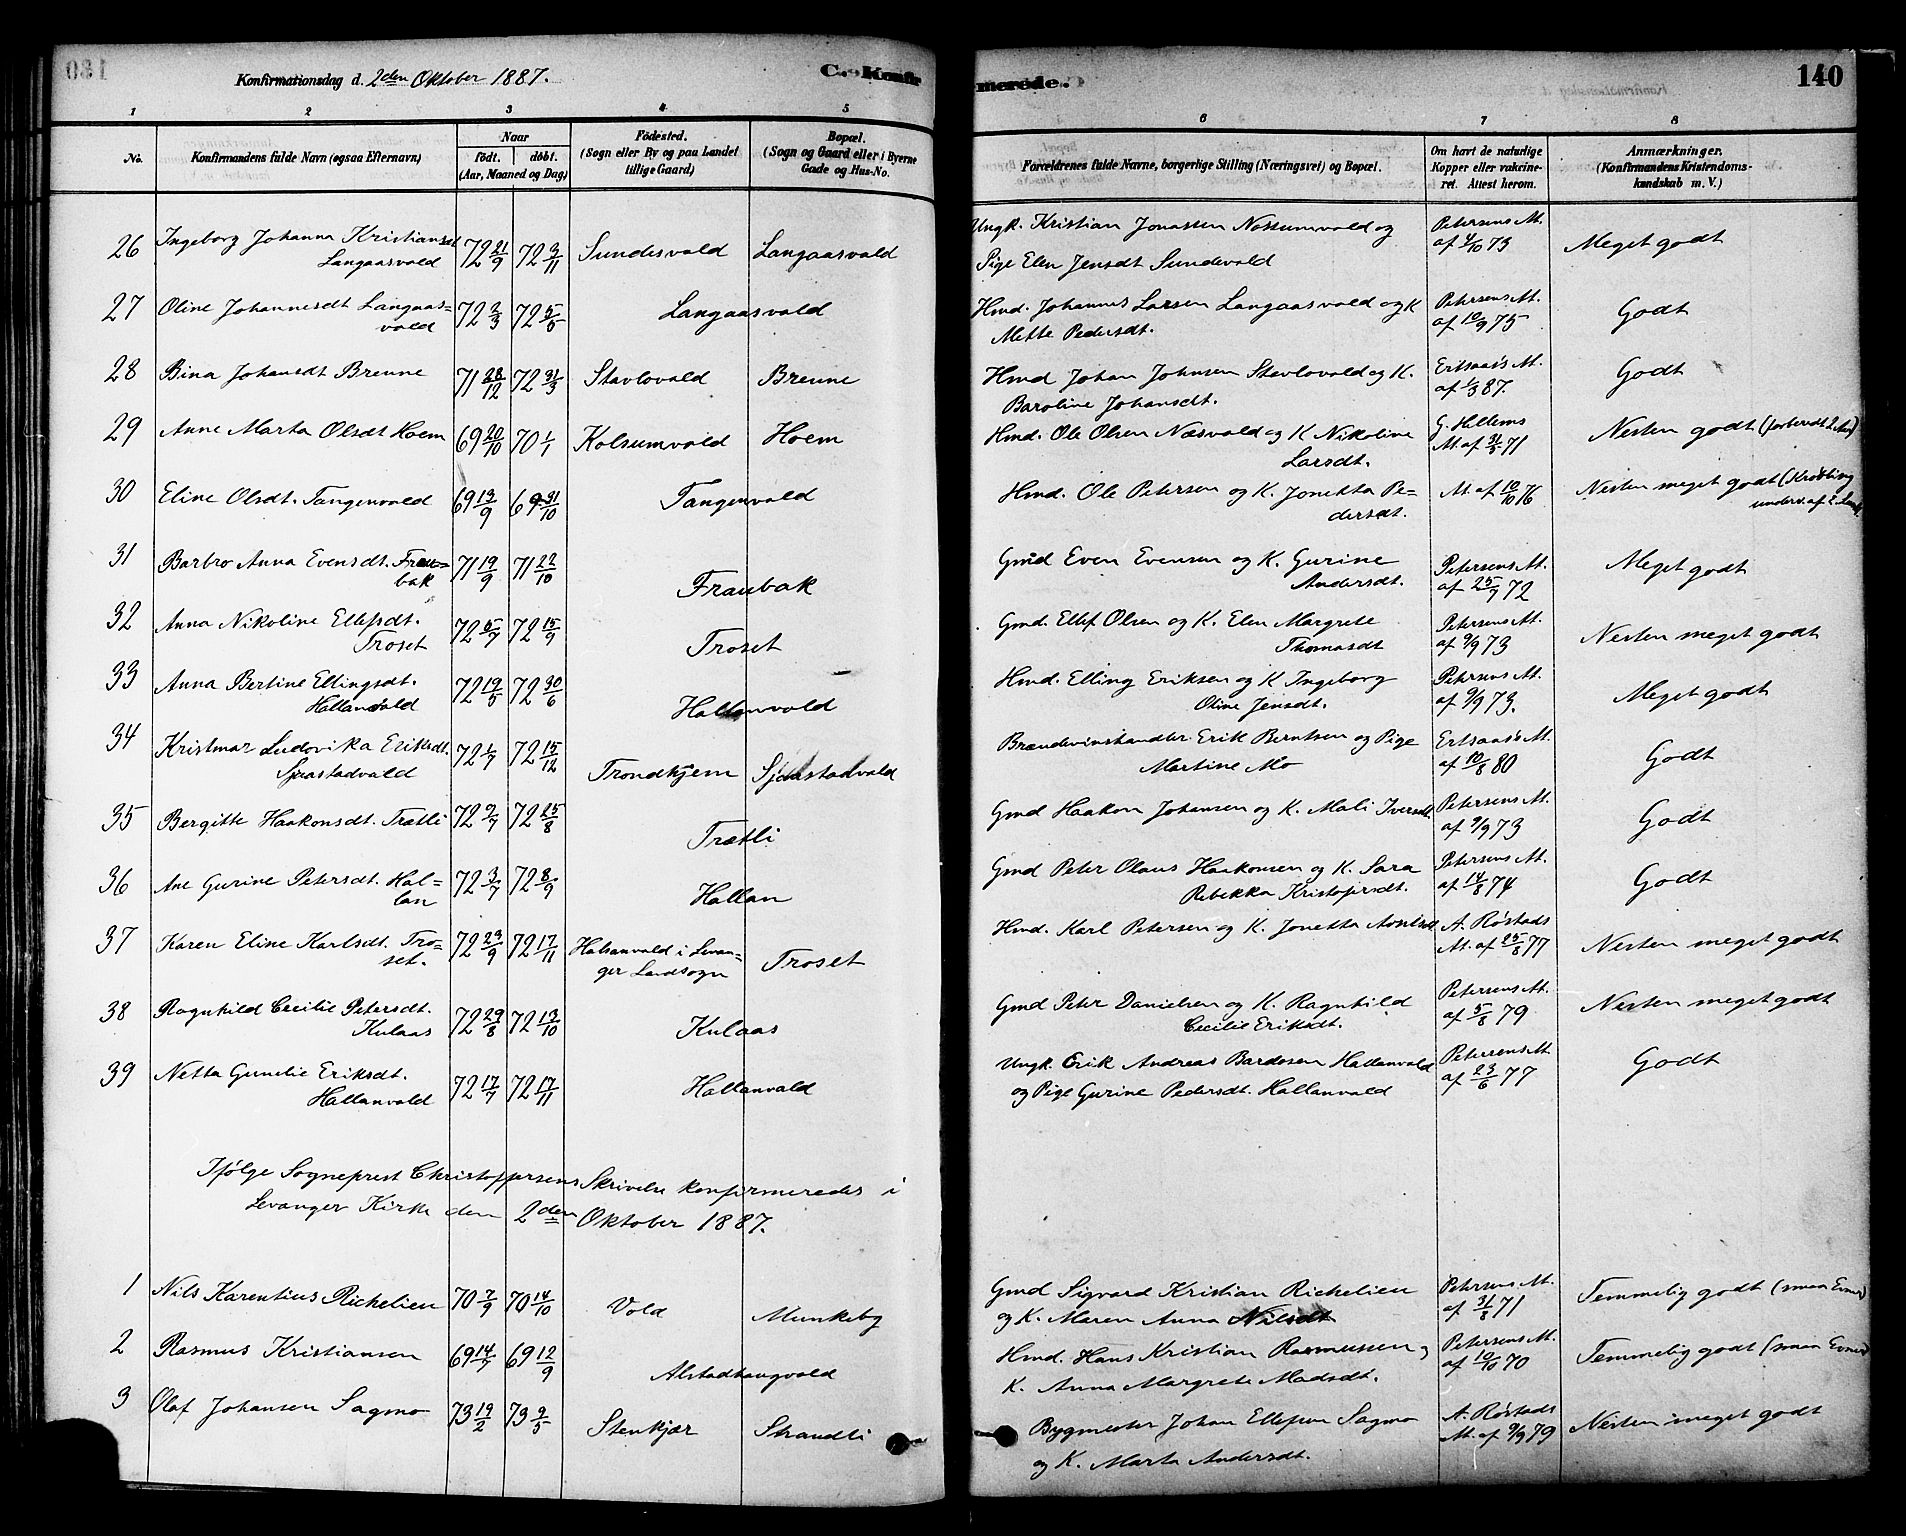 Konfirmationsdag d. 2den Oktober 1887.
C. Konfirmerede.
140
1 2 3 4 5 6 7 8
No.
Konfirmandens fulde Navn (ogsaa Efternavn)
Naar
födt. döbt.
(Aar, Maaned og Dag)
Födested.
(Sogn eller By og paa Landet
tillige Gaard)
Bopæl.
(Sogn og Gaard eller i Byerne
Gade og Hus-No.
Forældrenes fulde Navne, borgerlige Stilling (Næringsvei) og Bopæl.
Om havt de naturlige
Kopper eller vakcine-
ret. Attest herom.
Anmærkninger.
(Konfirmandens Kristendoms-
kundskab m. V.)
26 Ingeborg Johanna Kristiansdt 72 21/9 72 3/11 Sundesvald Langaasvald Ungk. Kristian Jonassen Nossumvald og Petersens At. Meget godt
Langaasvald Pige Elen Jensdt Sundevald af 4/10 73
27 Oline Johannesdt Langaas- 72 2/3 72 5/5 Langaasvald Hmd. Johannes Larsen Langaasvald og K Petersens At. Godt
vald Mette Pedersdt. af 10/9 75
28 Bina Johansdt Brenne 71 28/12 72 31/3 Stavlovald Brenne Hmd Johan Johnsen Stavlovald og K. Ertsaas's At. Godt
Baroline Johansdt. af 1/3 87.
29 Anne Marta Olsdt Hoem 69 20/10 70 1/1 Kolsumvald Hoem Hmd. Ole Olsen Næsvald og K Nikoline G. Hellems Nesten godt (forberedt 2 Aar)
Larsdt. At. af 31/5 71
30 Eline Olsdt. Tangenvald 69 13/9 69 31/10 Tangenvald Hmd. Ole Petersen og K. Jonetta Pe- At. af 10/10 76 Nesten meget godt (Krøbling
dersdt. underv. af
31 Barbro Anna Evensdt. Frau- 71 19/9 71 22/10 Fraubak Gmd Even Evensen og K. Gurine Petersens At. Meget godt
bak Andersdt. af 25/7 72
32 Anna Nikoline Ellefsdt. 72 5/7 72 15/9 Troset Gmd. Ellef Olsen og K. Elen Margrete Petersens At. Nesten meget godt
Troset Thomasdt af 9/9 73
33 Anna Bertine Ellingsdt. 72 19/5 72 30/6 Hallanvald Hmd. Elling Eriksen og K Ingeborg Petersens At. Meget godt
Hallanvald Oline Jensdt. af 9/9 73.
34 Kristmar Ludovika Eriksdt. 72 1/7 72 15/12 Trondhjem Sjaastadvald Brændevinshandler Erik Berntsen og Pige Ertsaas's At. Godt
Sjaastadvald Martine Mo af 10/8 80
35 Bergitte Haakonsdt. Trætli 72 9/7 72 25/8 Trætli Gmd Haakon Johansen og K. Mali Iversdt. Petersens At. Godt
af 9/9 73
36 Ane Gurine Petersdt. Hal- 72 3/7 72 8/9 Hallan Gmd Peter Olaus Haakonsen og K. Sara Petersens At. Godt
lan Rebekka Kristofersdt. af 14/8 74
37 Karen Eline Karlsdt. Tro- 72 23/9 72 17/11 Halsanvald i Levan- Troset Hmd. Karl Petersen og K. Jonetta Axelsdt A. Røstads Nesten meget godt
set. ger Landsogn At. af 25/8 77
38 Ragnhild Cecilie Petersdt. 72 29/8 72 13/10 Kulaas Gmd Peter Danielsen og K. Ragnhild Petersens At. Nesten meget godt
Kulaas Cecilie Eriksdt. af 5/8 79
39 Netta Gunelie Eriksdt. 72 17/7 72 17/11 Hallanvald Ungk. Erik Andreas Bardosen Hallanvald Petersens At Godt
Hallanvald og Pige Gurine Pedersdt. Hallanvald af 23/6 77
Ifølge Sogneprest Christophersens Skrivelse konfirmeredes i
Levanger Kirke den 2den Oktober 1887.
1 Nils Karentius Richelieu 70 7/9 70 14/10 Vold Munkeby Gmd Sigvard Kristian Richelieu Petersens At. Temmelig godt (smaa Evner)
og K. Maren Anna Nilsdt af 31/8 71
2 Rasmus Kristiansen 69 14/7 69 12/9 Alstadhaugvald Hmd. Hans Kristian Rasmussen og Petersens At. Temmelig godt (smaa Evner)
K. Anna Margrete Madsdt. af 10/10 70
3 Olaf Johansen Sagmo 73 19/2 73 9/5 Stenkjær Strandli Bygmester Johan Ellefsen Sagmo A. Røstads Nesten meget godt
og K. Marta Andersdt. At. af 9/9 79